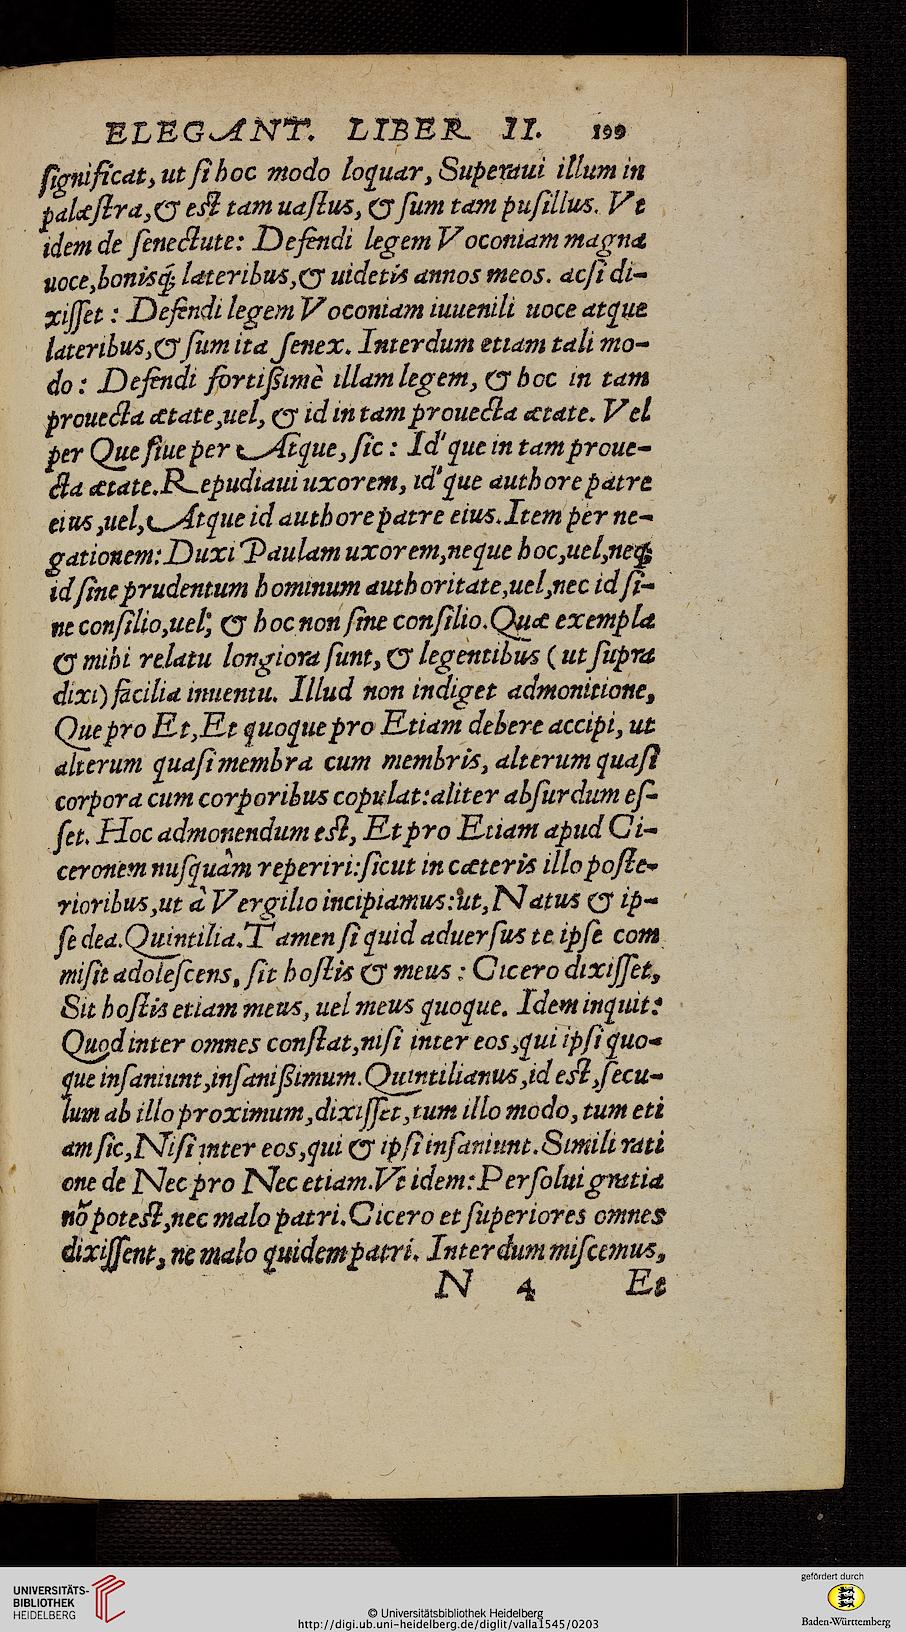 ELEGANT. LIBER II. 199
ſignificat, ut ſi hoc modo loquar, Superaui illum in
palæſtra, & eſt tam uaſtus, & ſum tam puſillus. Vt
idem de ſenectute: Defendi legem Voconiam magna
uoce, bonisq; lateribus, & uidetis annos meos. acſi di-
xiſſet : Defendi legem Voconiam iuuenili uoce atque
lateribus, & ſum ita ſenex. Interdum etiam tali mo-
do : Defendi fortißimè illam legem, & hoc in tam
prouecta ætate, uel, & id in tam prouecta ætate. Vel
per Que ſiue per Atque, ſic : Id'que in tam proue-
cta ætate. Repudiaui uxorem, id'que authore patre
eius, uel, Atque id authore patre eius. Item per ne-
gationem: Duxi Paulam uxorem, neque hoc, uel, neq;
id ſine prudentum hominum authoritate, uel, nec id ſi-
ne conſilio, uel, & hoc non ſine conſilio. Quæ exempla
& mihi relatu longiora ſunt, & legentibus (ut ſupra
dixi) facilia inuentu. Illud non indiget admonitione,
Que pro Et, Et quoque pro Etiam debere accipi, ut
alterum quaſi membra cum membris, alterum quaſi
corpora cum corporibus copulat: aliter abſurdum eſ-
ſet. Hoc admonendum eſt, Et pro Etiam apud Ci-
ceronem nuſquàm reperiri: ſicut in cæteris illo poſte-
rioribus, ut à Vergilio incipiamus: ut, Natus & ip-
ſe dea. Quintilia. Tamen ſi quid aduerſus te ipſe com
miſit adoleſcens, ſit hoſtis & meus : Cicero dixiſſet,
Sit hoſtis etiam meus, uel meus quoque. Idem inquit:
Quod inter omnes conſtat, niſi inter eos, qui ipſi quo-
que inſaniunt, inſanißimum. Quintilianus, id eſt, ſecu-
lum ab illo proximum, dixiſſet, tum illo modo, tum eti
am ſic, Niſi inter eos, qui & ipſi inſaniunt. Simili rati
one de Nec pro Nec etiam. Vt idem: Perſolui gratia
nõ poteſt, nec malo patri. Cicero et ſuperiores omnes
dixiſſent, ne malo quidem patri. Interdum miſcemus,
N 4 Et
UNIVERSITÄTS-
BIBLIOTHEK
HEIDELBERG
© Universitätsbibliothek Heidelberg
http://digi.ub.uni-heidelberg.de/diglit/valla1545/0203
gefördert durch
Baden-Württemberg